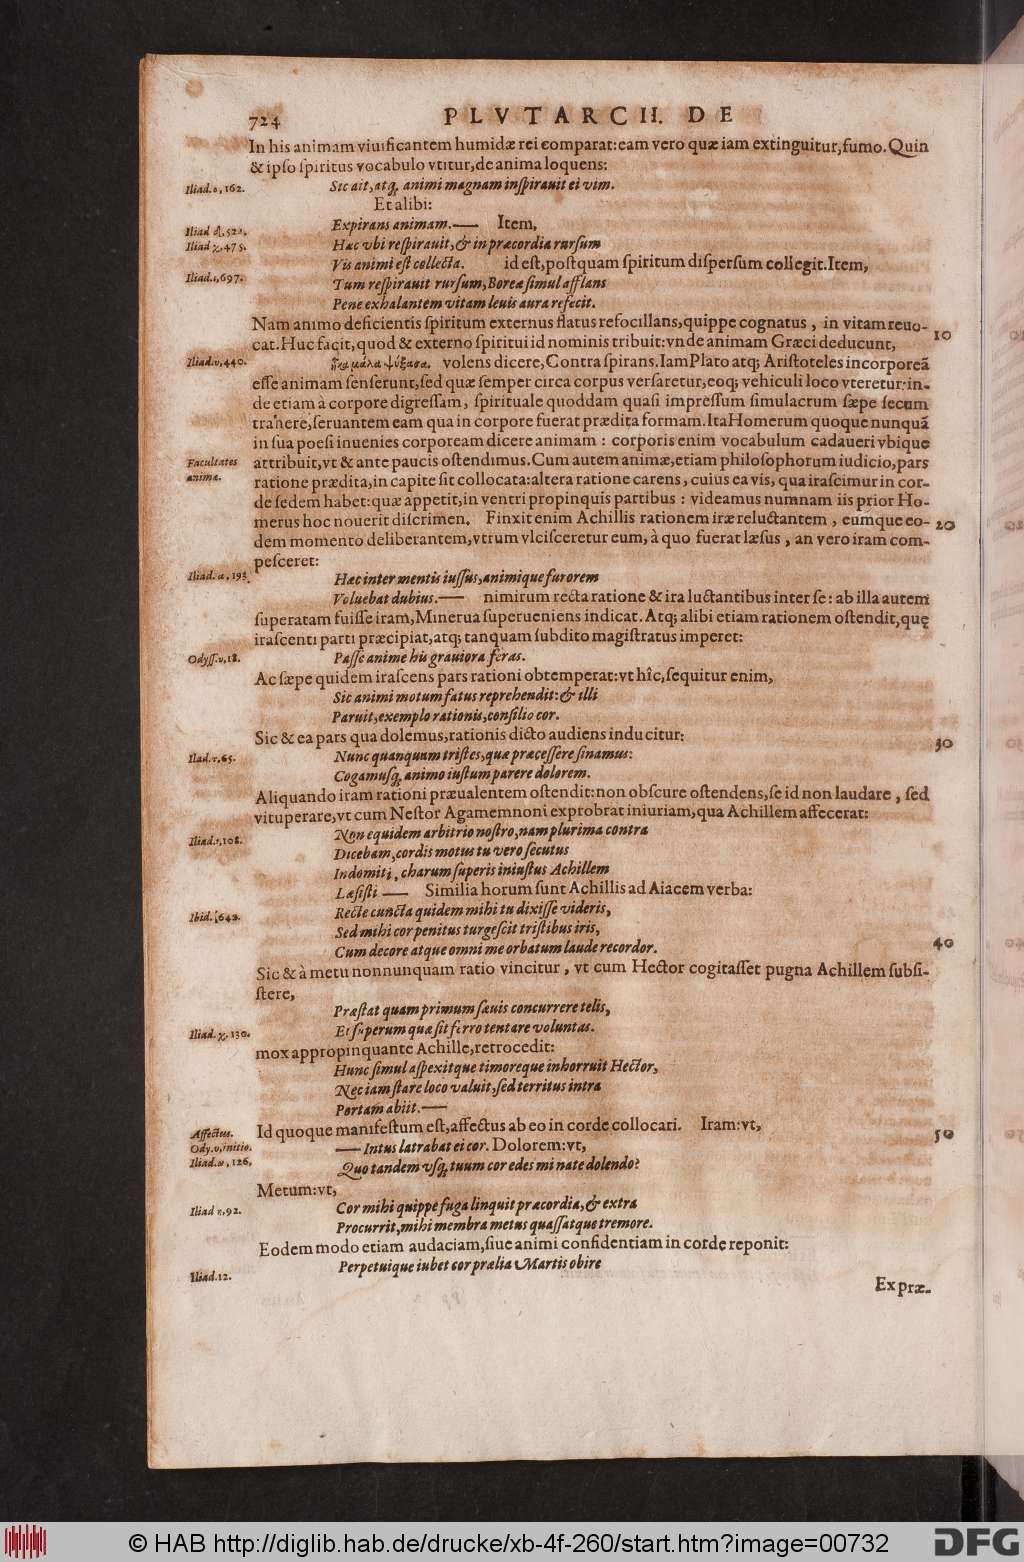 724 PLVTARCII. DE
In his animam viuificantem humidæ rei comparat: eam vero quæ iam extinguitur, fumo. Quin
& ipso spiritus vocabulo vtitur, de anima loquens:
Iliad. ο, 262. Sic ait, atq; animi magnam inspirauit ei vim.
Et alibi:
Iliad δ, 522. Expirans animam.— Item,
Iliad χ, 475. Hæc vbi respirauit, & in præcordia rursum
Vis animi est collecta. id est, postquam spiritum dispersum collegit. Item,
Iliad. ε, 697. Tum respirauit rursum, Boreæ simul afflans
Pene exhalantem vitam leuis aura refecit.
Nam animo deficientis spiritum externus flatus refocillans, quippe cognatus, in vitam reuo-
cat. Huc facit, quod & externo spiritui id nominis tribuit: vnde animam Græci deducunt, 10
Iliad. υ, 440. ἧκα μάλα ψύξασα. volens dicere, Contra spirans. Iam Plato atq; Aristoteles incorporeã
esse animam senserunt, sed quæ semper circa corpus versaretur, eoq; vehiculi loco vteretur: in-
de etiam à corpore digressam, spirituale quoddam quasi impressum simulacrum sæpe secum
trahere, seruantem eam qua in corpore fuerat prædita formam. Ita Homerum quoque nunquã
in sua poesi inuenies corpoream dicere animam: corporis enim vocabulum cadaueri vbique
Facultates attribuit, vt & ante paucis ostendimus. Cum autem animæ, etiam philosophorum iudicio, pars
animæ. ratione prædita, in capite sit collocata: altera ratione carens, cuius ea vis, qua irascimur in cor-
de sedem habet: quæ appetit, in ventri propinquis partibus: videamus numnam iis prior Ho-
merus hoc nouerit discrimen. Finxit enim Achillis rationem iræ reluctantem, eumque eo- 20
dem momento deliberantem, vtrum vlcisceretur eum, à quo fuerat læsus, an vero iram com-
pesceret:
Iliad. α, 193. Hæc inter mentis iussus, animique furorem
Voluebat dubius.— nimirum recta ratione & ira luctantibus inter se: ab illa autem
superatam fuisse iram, Minerua superueniens indicat. Atq; alibi etiam rationem ostendit, quę
irascenti parti præcipiat, atq; tanquam subdito magistratus imperet:
Odyss. υ, 18. Passe anime his grauiora feras.
Ac sæpe quidem irascens pars rationi obtemperat: vt hîc, sequitur enim,
Sic animi motum fatus reprehendit: & illi
Paruit, exemplo rationis, consilio cor.
Sic & ea pars qua dolemus, rationis dicto audiens inducitur: 30
Ilad. τ, 65. Nunc quanquam tristes, quæ præcessere sinamus:
Cogamusq; animo iustum parere dolorem.
Aliquando iram rationi præualentem ostendit: non obscure ostendens, se id non laudare, sed
vituperare, vt cum Nestor Agamemnoni exprobrat iniuriam, qua Achillem affecerat:
Iliad. ι, 108. Non equidem arbitrio nostro, nam plurima contra
Dicebam, cordis motus tu vero secutus
Indomiti, charum superis iniustus Achillem
Læsisti — Similia horum sunt Achillis ad Aiacem verba:
Ibid. 642. Recte cuncta quidem mihi tu dixisse videris,
Sed mihi cor penitus turgescit tristibus iris,
Cum decore atque omni me orbatum laude recordor. 40
Sic & à metu nonnunquam ratio vincitur, vt cum Hector cogitasset pugna Achillem subsi-
stere,
Præstat quam primum sæuis concurrere telis,
Iliad. χ, 130. Et superum quæ sit ferro tentare voluntas.
mox appropinquante Achille, retrocedit:
Hunc simul aspexitque timoreque inhorruit Hector,
Nec iam stare loco valuit, sed territus intra
Portam abiit.—
Affectus. Id quoque manifestum est, affectus ab eo in corde collocari. Iram: vt, 50
Ody. υ, initio. —Intus latrabat ei cor. Dolorem: vt,
Iliad. ω, 126. Quo tandem vsq; tuum cor edes mi nate dolendo?
Metum: vt,
Iliad κ, 92. Cor mihi quippe fuga linquit præcordia, & extra
Procurrit, mihi membra metus quassatque tremore.
Eodem modo etiam audaciam, siue animi confidentiam in corde reponit:
Iliad. 12. Perpetuique iubet cor prælia Martis obire
Ex præ-
© HAB http://diglib.hab.de/drucke/xb-4f-260/start.htm?image=00732 DFG